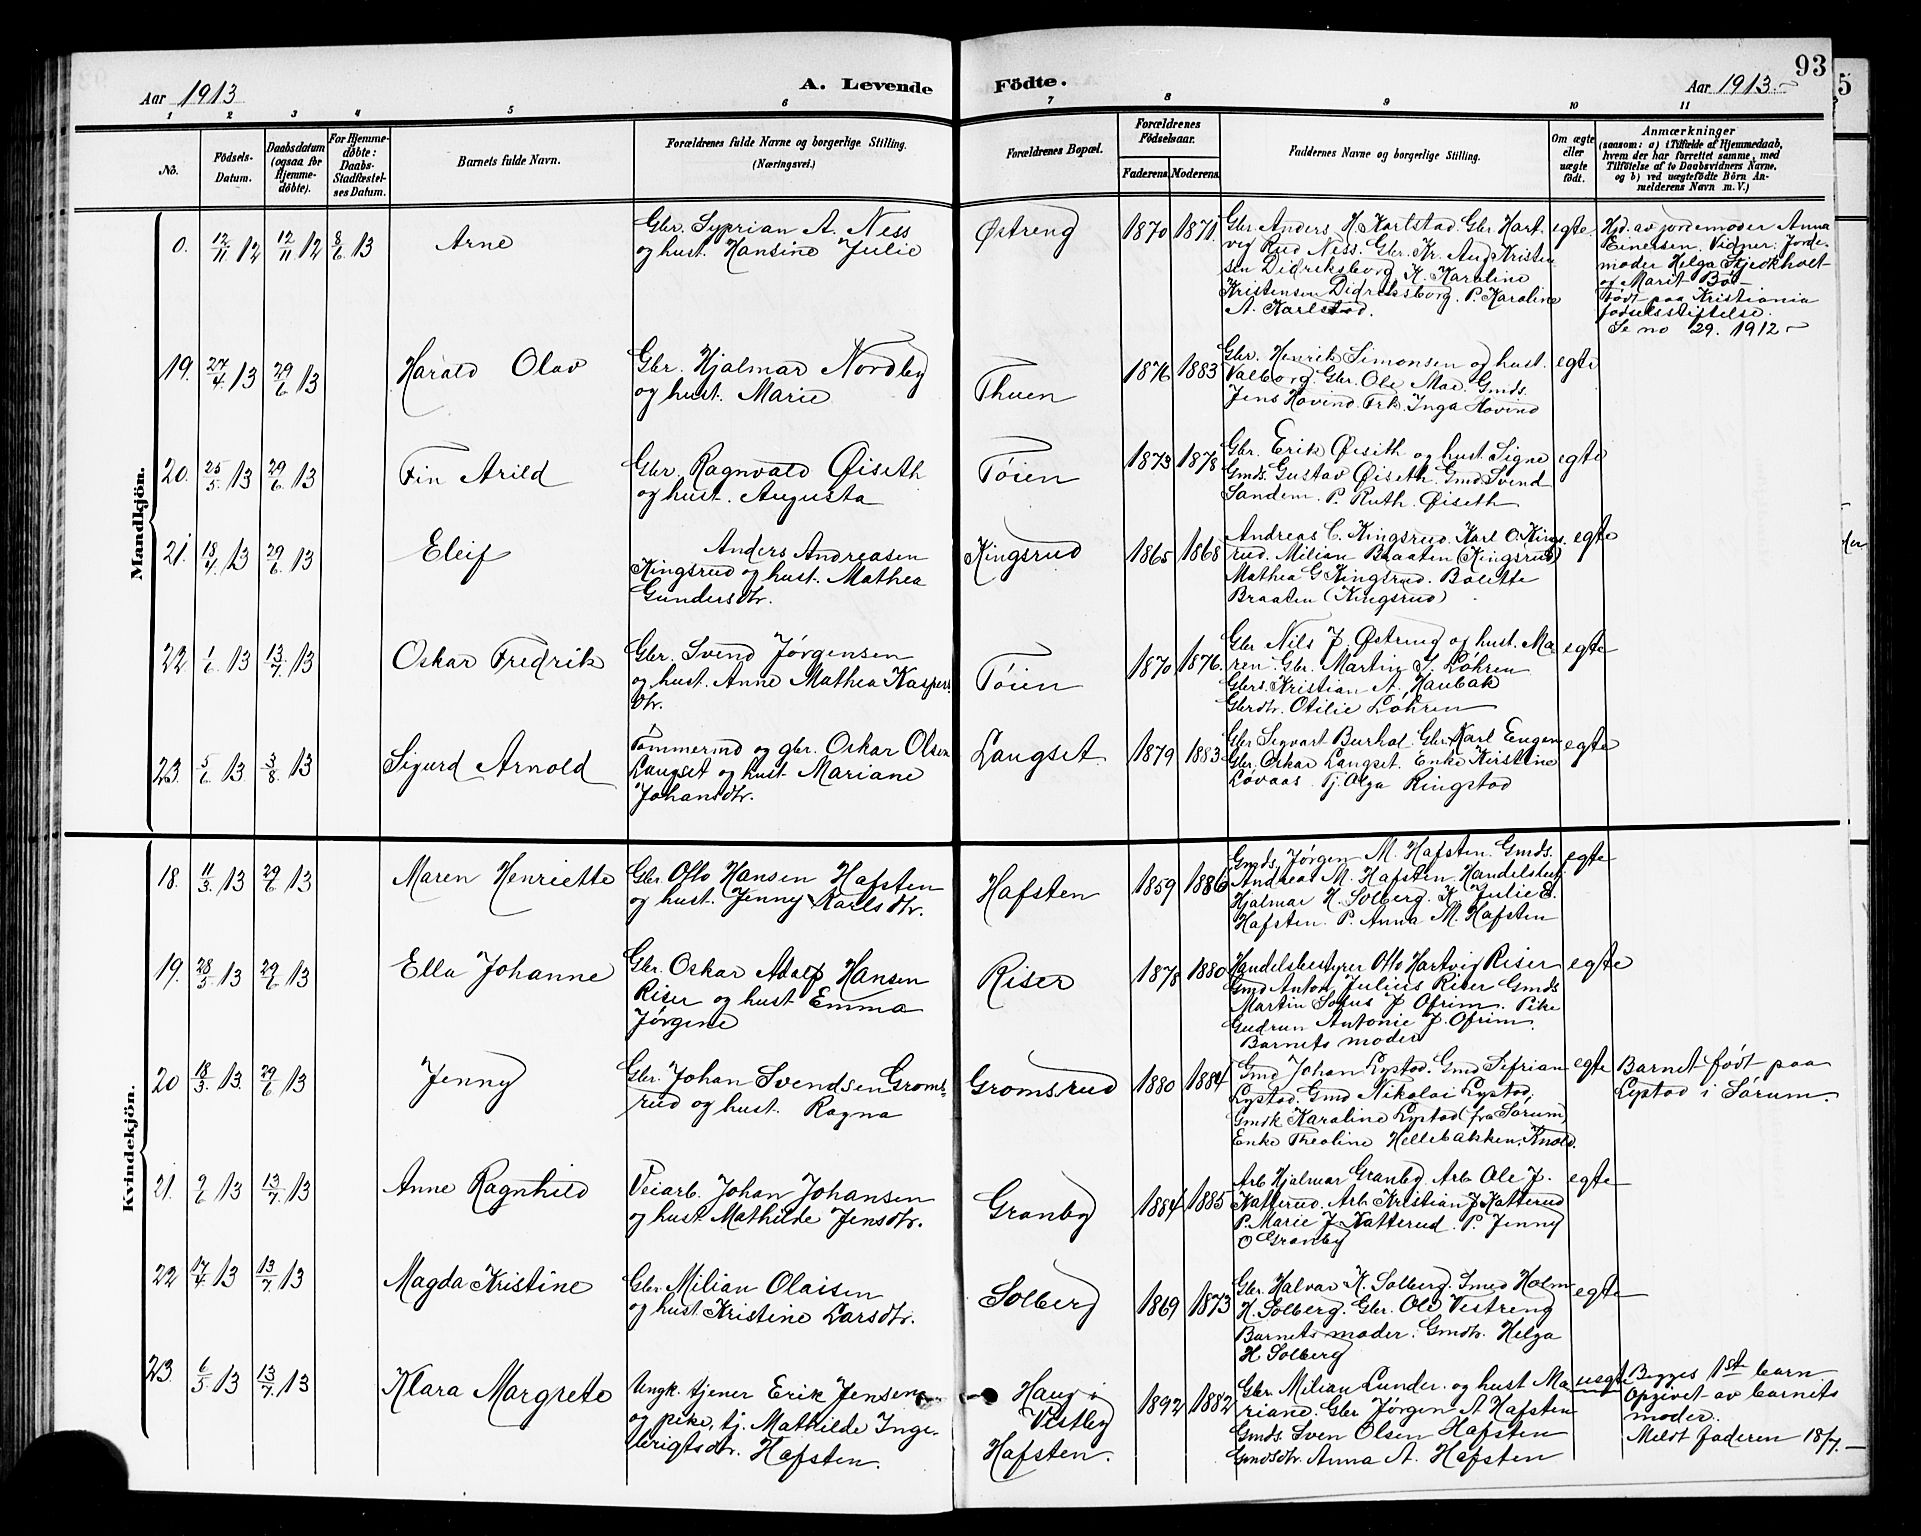 93
5
Aar 1913
A. Levende
Födte.
Aar 1913.
1 2 3 4 5 6 7 8 9 10 11
No.
Födsels-Datum.
Daabsdatum (ogsaa for Hjemme-döbte).
For Hjemme-döbte: Daabs-Stadfæstel-ses Datum.
Barnets fulde Navn.
Forældrenes fulde Navne og borgerlige Stilling.
(Næringsvei.)
Forældrenes Bopæl.
Forældrenes Födselsaar.
Faderens Moderens
Faddernes Navne og borgerlige Stilling.
Om ægte eller uægte födt.
Anmærkninger
(saasom: a) i Tilfælde af Hjemmedaab,
hvem der har forrettet samme, med
Tilföielse af to Daabsvidners Navne,
og b) ved uægtefödte Börn An-
melderens Navn m. V.)
Mandkjön.
0. 12/11 12 12/11 12 8/6 13
Arne
Gbr. Syprian A. Ness
og hust. Hansine Julie
Østreng
1870 1871
Gbr. Anders H. Karlstad. Gbr Hart.
vig Rud Ness. Gbr. Kr. Aug Kristen
sen Didriksborg. K. Karoline
Kristensen Didriksborg. P. Karoline
A. Karlstad.
egte.
Hjd. av jordemoder Anna
Einersen. Vidner: Jorde-
moder Helga Skjeokholt
og Marit Bø
Født paa Kristiania
fødselsstiftelse.
Se no 29. 1912
19. 27/4 13 29/6 13
Harald Olav
Gbr. Hjalmar Nordby
og hust. Marie
Thuen
1876 1883
Gbr. Henrik Simonsen og hust.
Valborg. Gbr. Ole Moe. Gmds.
Jens Hovind. Frk. Inga Hovind
egte
20. 25/5 13 29/6 13
Fin Arild
Gbr. Ragnvald Øiseth
og hust. Augusta
Tøien
1873 1878
Gbr. Erik Øiseth og hust. Signe
Gmds. Gustav Øiseth. Gmd. Svend
Sandem. P. Ruth. Øiseth
egte
21. 18/4 13 29/6 13
Eleif
Anders Andreasen
Kingsrud og hust. Mathea
Gundersdtr.
Kingsrud
1865 1868
Andreas C. Kingsrud. Karl O. Kings.
rud. Milian Braaten (Kingsrud)
Mathea G Kingsrud. Bolette
Braaten (Kingsrud)
egte
22 1/6 13 13/7 13
Oskar Fredrik
Gbr. Svend Jørgensen
og hust. Anne Mathea Kaspers
dtr.
Tøien
1870 1876.
Gbr Nils J. Østreng og hust. Ma
ren. Gbr. Martin J. Løhren
Gbrs. Kristian A. Haubak
Gbrdtr. Otilie Løhren
egte
23. 5/6 13 3/8 13
Sigurd Arnold
Tømmermd og gbr. Oskar Olsen
Langset og hust. Mariane
Johansdtr.
Langset
1879 1883
Gbr Sigvart Burhol. Gbr. Karl Eugen
Gbr. Oskar Langset. Enke Kirstine
Løvaas. Tj. Olga Ringstad
egte
Kvindekjön.
18. 11/3 13 29/6 13
Maren Henriette
Gbr. Otto Hansen Hafsten
og hust. Jenny Karlsdtr.
Hafsten
1859 1886
Gmds. Jørgen M. Hafsten. Gmds.
Andreas M. Hafsten. Handelsbest.
Hjalmar H. Solberg. K. Julie E.
Hafsten. P. Anna M. Hafsten
egte
19. 28/5 13 29/6 13
Ella Johanne
Gbr. Oskar Adolf Hansen
Riser og hust Emma
Jørgine
Riser
1878 1880
Handelsbestyrer Otto Hartvig Riser
Gmd Anton Julius Riser Gmds
Martin Sofus J. Ofrim. Pike
Gudrun Antonie J. Ofrim.
Barnets moder
egte
20 18/3 13. 29/6 13
Jenny
Gbr. Johan Svendsen Groms-
rud og hust. Ragna
Gromsrud
1880 1884
Gmd Johan Lystad. Gmd Sefrian
Lystad. Gmd Nikolai Lystad,
Gmdk Karoline Lystad (fra Sørum)
Enke Theoline Hellebakken, Knold.
egte
Barnet født paa
Lystad i Sørum.
21. 9/6 13 13/7 13
Anne Ragnhild
Veiarb. Johan Johansen
og hust Mathilde Jensdtr.
Granby
1884 1885
Arb Hjalmar Granby. Arb. Ole J.
Katterud. Arb. Kristian J. Katterud
P. Marie J. Katterud. P. Jenny
O Granby
egte
22 17/4 13 13/7 13
Magda Kristine
Gbr. Milian Olaisen
og hust. Kristine Larsdtr.
Solberg
1869 1873
Gbr. Halvar K. Solberg. Smed Holm
H. Solberg. Gbr. Ole Vestreng
Barnets moder. Gmdtr. Helga
H. Solberg
egte
23. 6/5 13 13/7 13
Klara Margrete
Ungk. tjener Erik Jensen
og pike, tj. Mathilde Inge-
brigtsdtr. Hafsten.
Haug i
Vestby
Hafsten.
1892 1882
Gbr. Milian Lunder og hust Ma
riane. Gbr Jørgen A. Hafsten
Gmds. Sven Olsen Hafsten
Gmdsdtr. Anna A. Hafsten
uegte
Begges 1ste barn
Opgivet av barnets
moder.
Meldt faderen 18/7.